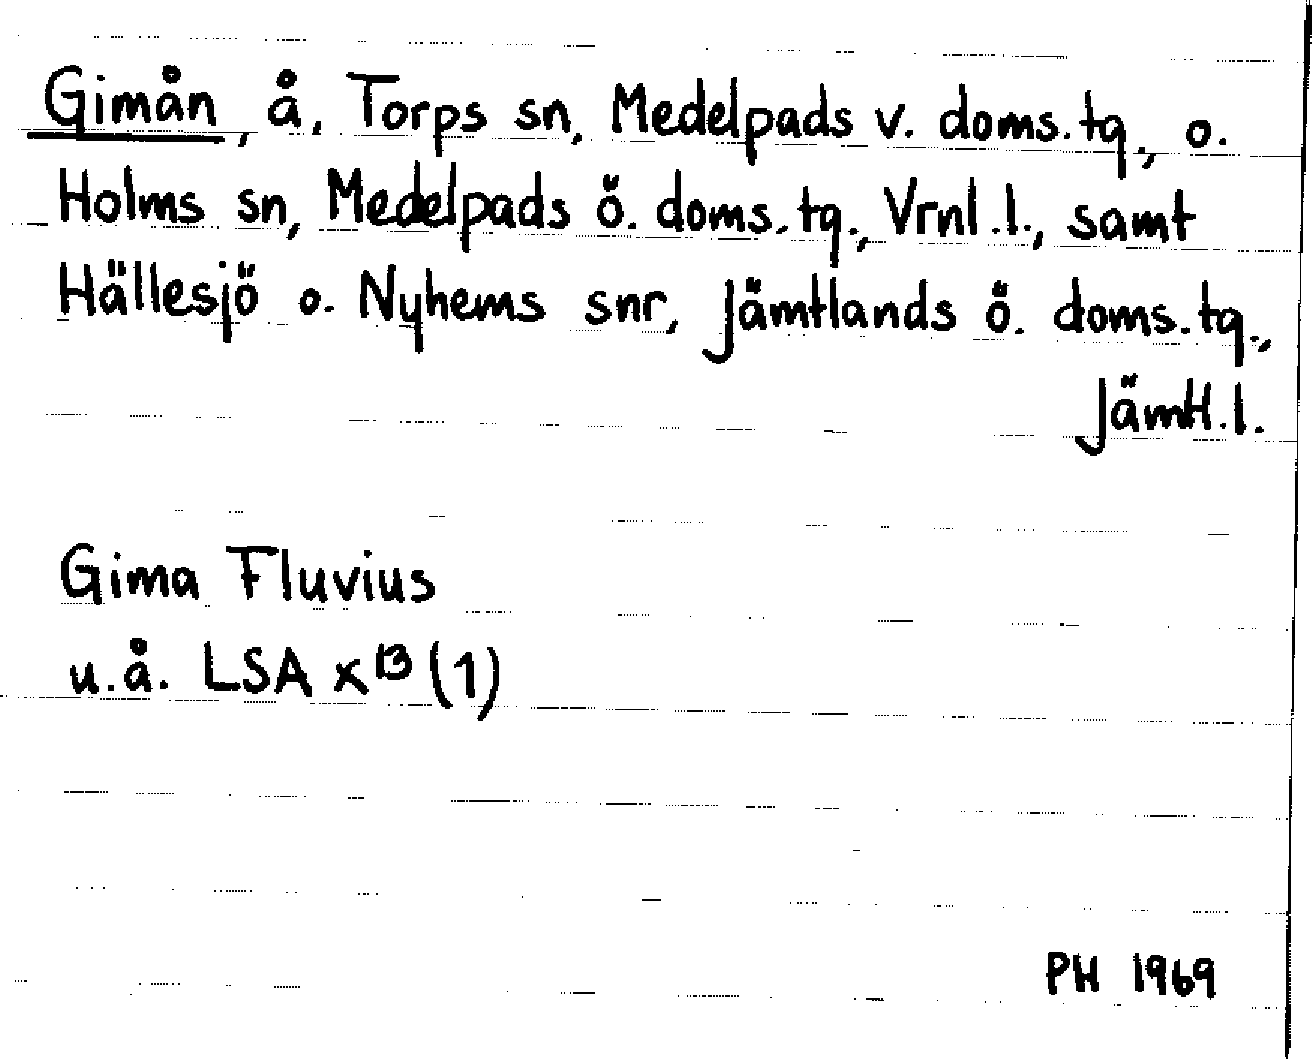 Gimån, å, Torps sn, Medelpads v. doms.tg., o.
Holms sn, Medelpads ö. doms.tg., Vrnl.l., samt
Hällesjö o. Nyhems snr, Jämtlands ö. doms.tg.,
Jämtl.l.
Gima Fluvius
u.å. LSA x¹³ (1)
PH 1969